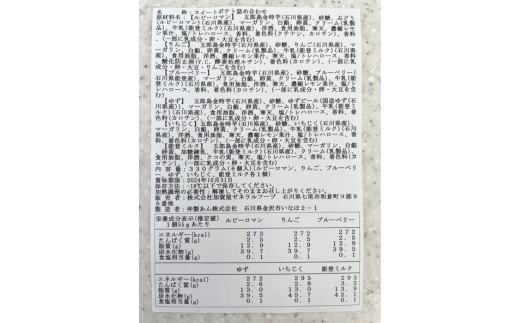 名　　称：スイートポテト詰め合わせ
原材料名：【ルビーロマン】　五郎島金時芋(石川県産)、砂糖、ぶどう
(ルビーロマン)(石川県産)、マーガリン、白餡、卵黄、クリーム(乳製品)、
牛乳(能登ミルク)(石川県産)、食用油脂、洋酒、寒天、濃縮レモ
ン果汁、塩/トレハロース、香料、着色料(クチナシ、カロチン)、香料、
(一部に乳成分・卵・大豆を含む)
【りんご】　五郎島金時芋(石川県産)、砂糖、りんご(石川県産)、
マーガリン、白餡、卵黄、クリーム(乳製品)、牛乳(能登ミルク)(石
川県産)、洋酒、食用油脂、寒天、濃縮レモン果汁、塩/トレハロー
ス、酸化防止剤(V.C、酵素処理ルチン)、香料、着色料(カロチン)、
(一部に乳成分・卵・大豆を含む)
【ブルーベリー】　五郎島金時芋(石川県産)、砂糖、ブルーベリー(
石川県能登産)、マーガリン、白餡、卵黄、クリーム(乳製品)、牛乳(能
登ミルク)(石川県産)、食用油脂、洋酒、寒天、濃縮レモン果汁、塩/
トレハロース、香料、着色料(カロチン)、(一部に乳成分・卵・大豆を
含む)
【ゆず】　五郎島金時芋(石川県産)、砂糖、ゆずピール(国造ゆず(石
川県産))、マーガリン、白餡、卵黄、クリーム(乳製品)、牛乳(能登ミ
ルク)(石川県産)、食用油脂、洋酒、寒天、塩/トレハロース、香料、着
色料(カロチン)、(一部に乳成分・卵・大豆を含む)
【いちじく】　五郎島金時芋(石川県産)、砂糖、いちじく(石川県産)、
マーガリン、白餡、卵黄、クリーム(乳製品)、牛乳(能登ミルク)(石
川県産)、洋酒、食用油脂、寒天、濃縮レモン果汁、塩/トレハロース、
香料、着色料(カロチン)、(一部に乳成分・卵・大豆を含む)
【能登ミルク】　五郎島金時芋(石川県産)、砂糖、マーガリン、白餡、
卵黄、加糖練乳、牛乳(能登ミルク)(石川県産)、クリーム(乳製品)、
食用油脂、洋酒、クコの実、寒天、塩/トレハロース、香料、着色料(カ
ロチン)、(一部に乳成分・卵・大豆を含む)
内 容 量：３３０グラム(６個入)(ルビーロマン、りんご、ブルーベリ
ー、ゆず、いちじく、能登ミルク各１個)
賞味期限：2024年10月31日
保存方法：-18℃以下で保存してください。
加熱調理の必要性：解凍してそのままお召し上がりください。
販 売 者：株式会社加賀屋ゼネラルフーヅ　石川県七尾市和倉町９部９
６番地
製 造 者：沖製あん株式会社　石川県金沢市いなほ２−１
栄養成分表示(推定値)　ルビーロマン　りんご　ブルーベリー
１個55gあたり
エネルギー(kcal)　２７３　２７２　２７２
たんぱく質(g)　２.５　２.５　２.５
脂質(g)　１２.９　１２.９　１２.９
炭水化物(g)　３９.７　３９.７　３９.５
食塩相当量(g)　０.１　０.１　０.１
ゆず　いちじく　能登ミルク
エネルギー(kcal)　２７２　２９５　２９３
たんぱく質(g)　２.６　２.８　３.２
脂質(g)　１３.０　１３.０　１３.９
炭水化物(g)　３９.５　４５.７　４２.１
食塩相当量(g)　０.１　０.１　０.１